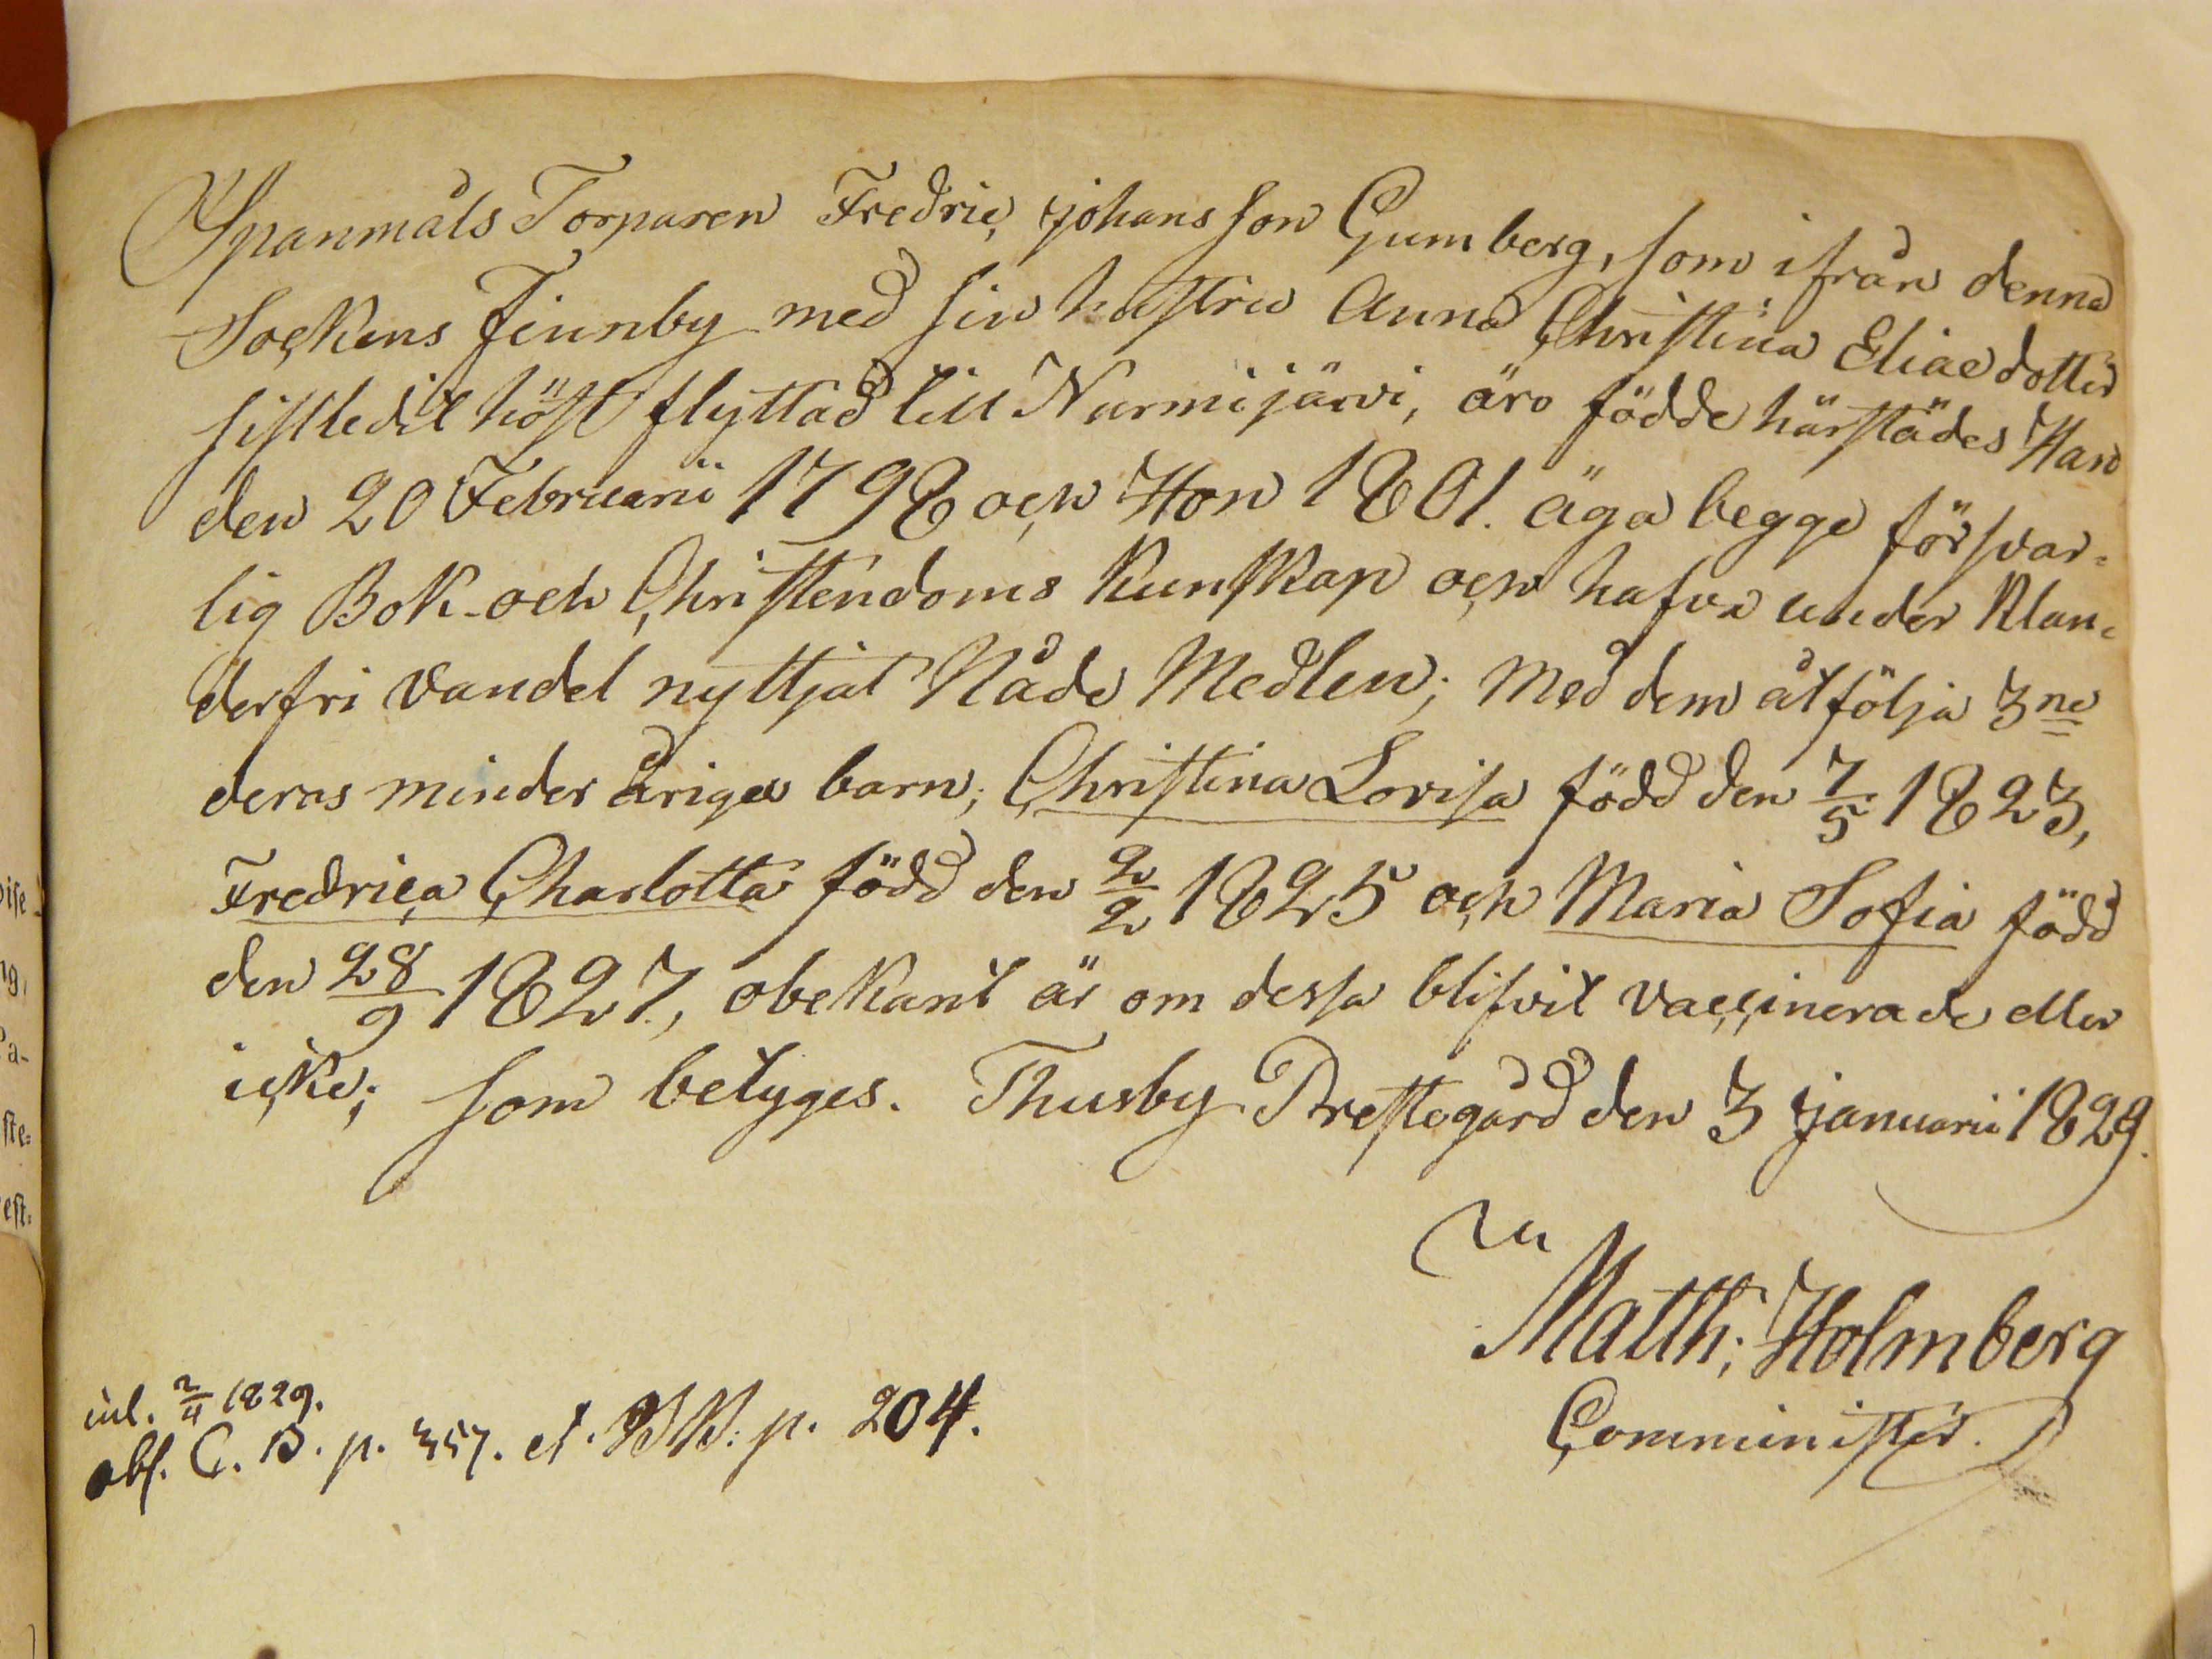 Spanmåls Torparen Fredric Johansson Gumberg, som ifrån denna
Sockens Finnby med sin hustru Anna Christina Eliae dotter
sistledit höst flyttad till Nurmijärvi, äro födde härstädes Han
den 20 Februarii 1798 och Hon 1801. äga begge försvar-
lig Bok- och Christendoms Kunskap och hafva under Klan-
derfri vandel nyttjat Nåde Medlen; med dem åtfölja 3ne
deras minder åriga barn; Christina Lovisa född den 7/5 1823,
Fredrica Charlotta född den 2/2 1825 och Maria Sofia född
den 28/9 1827, obekant är om dessa blifvit vaccinerade eller
icke; som betyges. Thusby Prestegård den 3 Januarii 1829.
Matth: Holmberg
Comminister.
inl. 2/4 1829.
abs. C. B. p. 357. et. p. 204.
ise
ng,
Pa-
ste-
est-